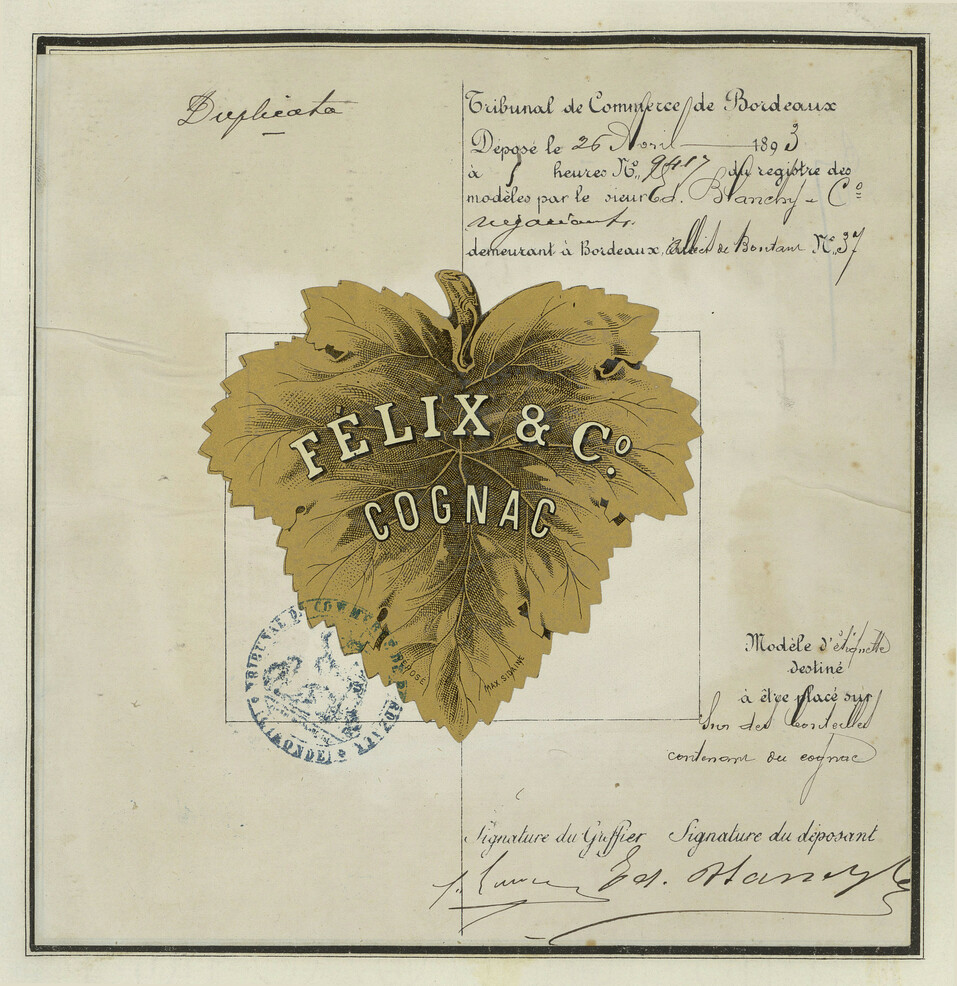 Duplicata
Tribunal de Commerce de Bordeaux
Déposé le 26 Avril 1893
à 5 heures N° 9417 du registre des
modèles par le sieur Ed. Blanchy & Co
négociants
demeurant à Bordeaux, de Boutaut N° 37
FÉLIX & Co
COGNAC
DÉPOSÉ
MAX. SIRAINE
TRIBUNAL DE COMMERCE DE BORDEAUX
(GIRONDE)
Modèle d'étiquette
destiné
à être placé sur
sur des bouteilles
contenant du cognac
Signature du Greffier Signature du déposant
Ed.